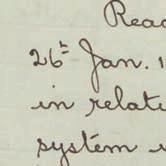 Read
26th Jan. 1
in relati
system